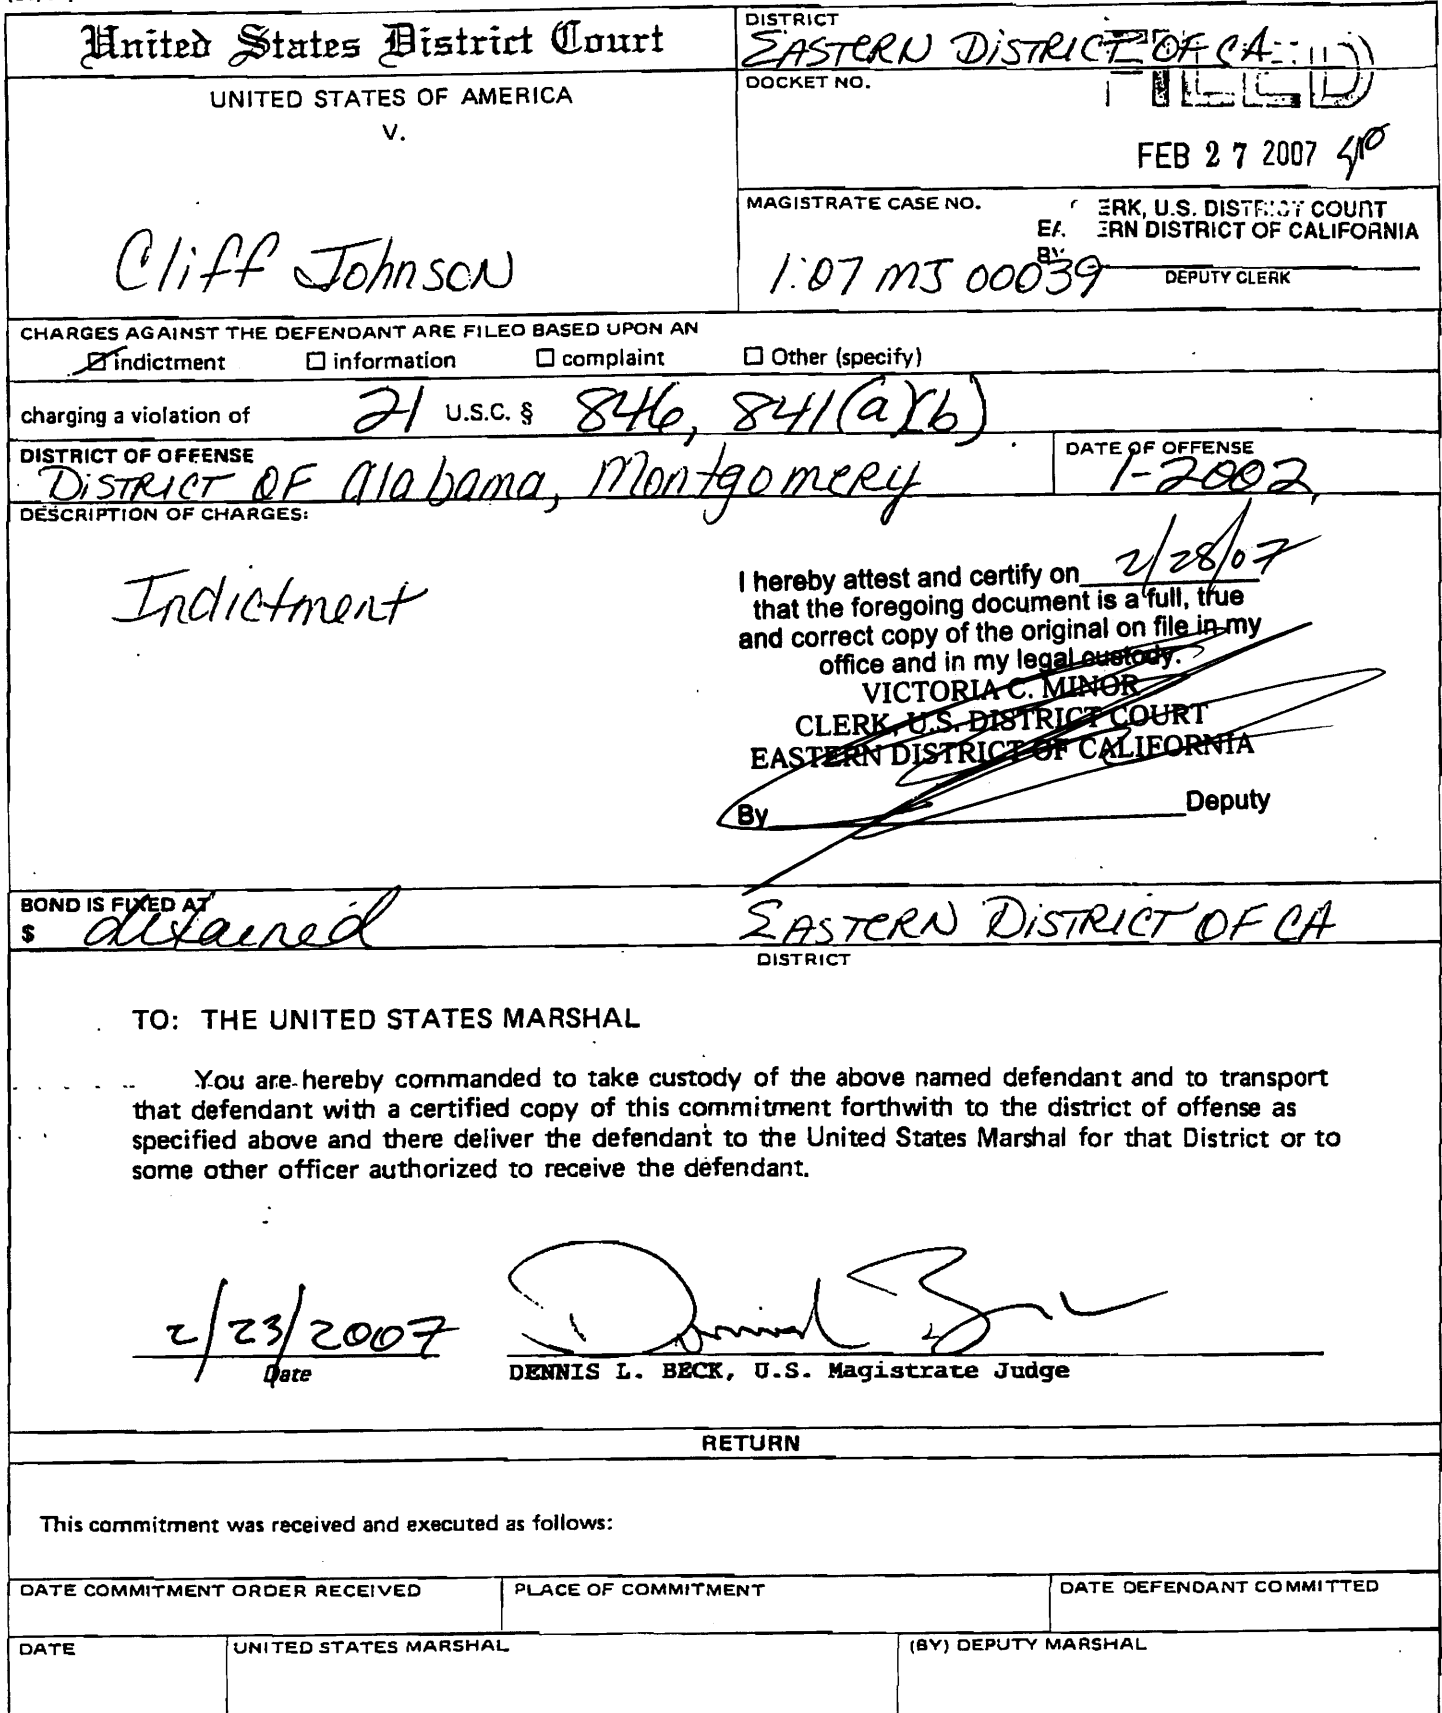 United States District Court
DISTRICT
EASTERN DISTRICT OF CA
UNITED STATES OF AMERICA
V.
Cliff Johnson
DOCKET NO.
FILED
FEB 27 2007
MAGISTRATE CASE NO.
1:07 MJ 00039
ERK, U.S. DISTRICT COURT
EA ERN DISTRICT OF CALIFORNIA
BY
DEPUTY CLERK
CHARGES AGAINST THE DEFENDANT ARE FILED BASED UPON AN
indictment ☐ information ☐ complaint ☐ Other (specify)
charging a violation of 21 U.S.C. § 846, 841(a)(b)
DISTRICT OF OFFENSE
DISTRICT OF Alabama, Montgomery
DATE OF OFFENSE
1-2002
DESCRIPTION OF CHARGES:
Indictment
I hereby attest and certify on 2/28/07
that the foregoing document is a full, true
and correct copy of the original on file in my
office and in my legal custody.
VICTORIA C. MINOR
CLERK, U.S. DISTRICT COURT
EASTERN DISTRICT OF CALIFORNIA
By Deputy
BOND IS FIXED AT
$ detained
EASTERN DISTRICT OF CA
DISTRICT
TO: THE UNITED STATES MARSHAL
You are hereby commanded to take custody of the above named defendant and to transport
that defendant with a certified copy of this commitment forthwith to the district of offense as
specified above and there deliver the defendant to the United States Marshal for that District or to
some other officer authorized to receive the defendant.
2/23/2007
Date
DENNIS L. BECK, U.S. Magistrate Judge
RETURN
This commitment was received and executed as follows:
DATE COMMITMENT ORDER RECEIVED
PLACE OF COMMITMENT
DATE DEFENDANT COMMITTED
DATE
UNITED STATES MARSHAL
(BY) DEPUTY MARSHAL